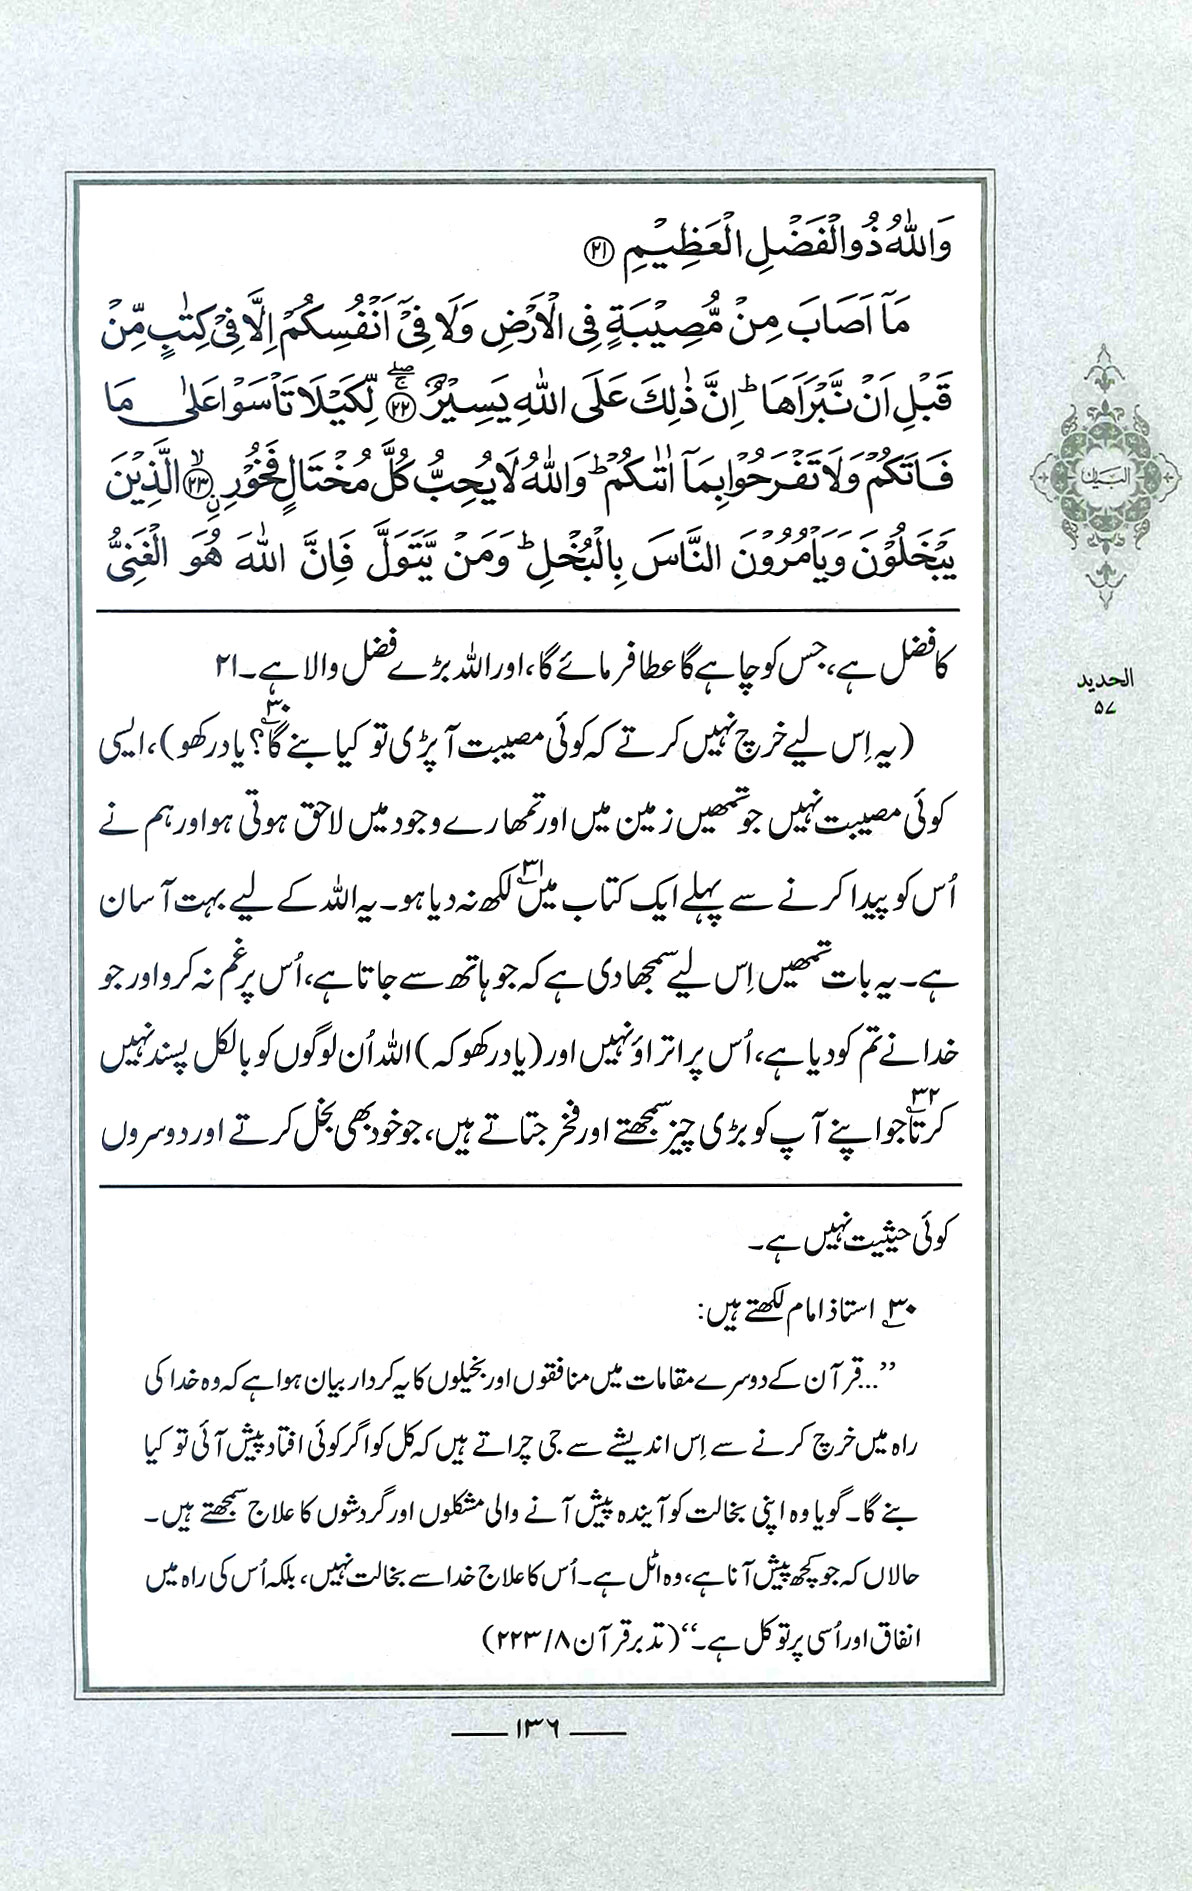 وَاللّٰهُ ذُو الْفَضْلِ الْعَظِيْمِ ﴿۲۱﴾
مَاۤ اَصَابَ مِنْ مُّصِيْبَةٍ فِى الْاَرْضِ وَلَا فِىْۤ اَنْفُسِكُمْ اِلَّا فِىْ كِتٰبٍ مِّنْ
قَبْلِ اَنْ نَّبْرَاَهَا ؕ اِنَّ ذٰلِكَ عَلَى اللّٰهِ يَسِيْرٌ ﴿۲۲﴾ لِّكَيْلَا تَاْسَوْا عَلٰى مَا
فَاتَكُمْ وَلَا تَفْرَحُوْا بِمَاۤ اٰتٰىكُمْ ؕ وَاللّٰهُ لَا يُحِبُّ كُلَّ مُخْتَالٍ فَخُوْرِ ۙ﴿۲۳﴾ۨ الَّذِيْنَ
يَبْخَلُوْنَ وَيَاْمُرُوْنَ النَّاسَ بِالْبُخْلِ ؕ وَمَنْ يَّتَوَلَّ فَاِنَّ اللّٰهَ هُوَ الْغَنِىُّ
البیان
الحدید
۵۷
کا فضل ہے، جس کو چاہے گا عطا فرمائے گا، اور اللہ بڑے فضل والا ہے۔ ۲۱
(یہ اِس لیے خرچ نہیں کرتے کہ کوئی مصیبت آپڑی تو کیا بنے گا۳۰؟ یاد رکھو)، ایسی
کوئی مصیبت نہیں جو تمھیں زمین میں اور تمھارے وجود میں لاحق ہوتی ہو اور ہم نے
اُس کو پیدا کرنے سے پہلے ایک کتاب میں۳۱ لکھ نہ دیا ہو۔ یہ اللہ کے لیے بہت آسان
ہے۔ یہ بات تمھیں اِس لیے سمجھا دی ہے کہ جو ہاتھ سے جاتا ہے، اُس پر غم نہ کرو اور جو
خدا نے تم کو دیا ہے، اُس پر اتراؤ نہیں اور (یاد رکھو کہ) اللہ اُن لوگوں کو بالکل پسند نہیں
کرتا۳۲ جو اپنے آپ کو بڑی چیز سمجھتے اور فخر جتاتے ہیں، جو خود بھی بخل کرتے اور دوسروں
کوئی حیثیت نہیں ہے۔
۳۰ استاذ امام لکھتے ہیں:
’’...قرآن کے دوسرے مقامات میں منافقوں اور بخیلوں کا یہ کردار بیان ہوا ہے کہ وہ خدا کی
راہ میں خرچ کرنے سے اِس اندیشے سے جی چراتے ہیں کہ کل کو اگر کوئی افتاد پیش آئی تو کیا
بنے گا۔ گویا وہ اپنی بخالت کو آیندہ پیش آنے والی مشکلوں اور گردشوں کا علاج سمجھتے ہیں۔
حالاں کہ جو کچھ پیش آنا ہے، وہ اٹل ہے۔ اُس کا علاج خدا سے بخالت نہیں، بلکہ اُس کی راہ میں
انفاق اور اُسی پر توکل ہے۔‘‘ (تدبرقرآن ۸/ ۲۲۳)
۱۳۶